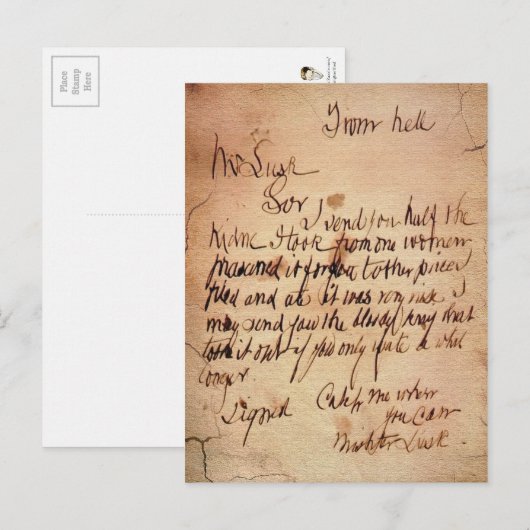 Place
Stamp
Here
From hell
Mr Lusk
Sor
I send you half the
Kidne I took from one women
prasarved it for you tother piece I
fried and ate it was very nise I
may send you the bloody knif that
took it out if you only wate a whil
longer.
signed
Catch me when
you can
Mishter Lusk.